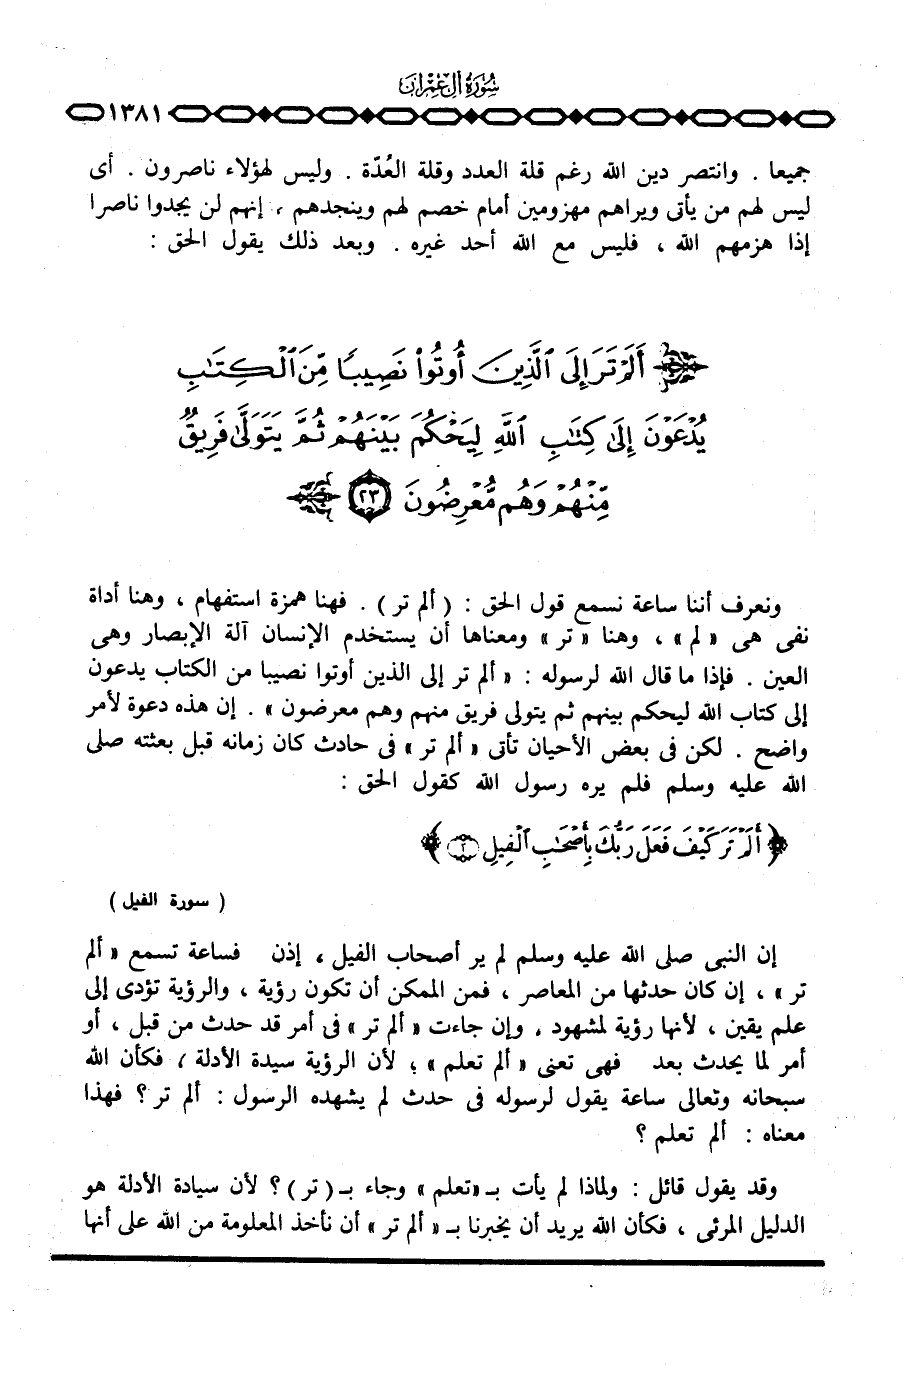 سُورَةُ آلِ عِمْرَانَ
١٣٨١
جميعا . وانتصر دين الله رغم قلة العدد وقلة العُدّة . وليس لهؤلاء ناصرون . أى
ليس لهم من يأتى ويراهم مهزومين أمام خصم لهم وينجدهم ، إنهم لن يجدوا ناصرا
إذا هزمهم الله ، فليس مع الله أحد غيره . وبعد ذلك يقول الحق :
﴿ أَلَمْ تَرَ إِلَى ٱلَّذِينَ أُوتُوا۟ نَصِيبًا مِّنَ ٱلْكِتَٰبِ
يُدْعَوْنَ إِلَىٰ كِتَٰبِ ٱللَّهِ لِيَحْكُمَ بَيْنَهُمْ ثُمَّ يَتَوَلَّىٰ فَرِيقٌ
مِّنْهُمْ وَهُم مُّعْرِضُونَ ٢٣ ﴾
ونعرف أننا ساعة نسمع قول الحق : ( ألم تر ) . فهنا همزة استفهام ، وهنا أداة
نفى هى « لم » ، وهنا « تر » ومعناها أن يستخدم الإنسان آلة الإبصار وهى
العين . فإذا ما قال الله لرسوله : « ألم تر إلى الذين أوتوا نصيبا من الكتاب يدعون
إلى كتاب الله ليحكم بينهم ثم يتولى فريق منهم وهم معرضون » . إن هذه دعوة لأمر
واضح . لكن فى بعض الأحيان تأتى « ألم تر » فى حادث كان زمانه قبل بعثته صلى
الله عليه وسلم فلم يره رسول الله كقول الحق :
﴿ أَلَمْ تَرَ كَيْفَ فَعَلَ رَبُّكَ بِأَصْحَٰبِ ٱلْفِيلِ ﴾
( سورة الفيل )
إن النبى صلى الله عليه وسلم لم ير أصحاب الفيل ، إذن فساعة تسمع « ألم
تر » ، إن كان حدثها من المعاصر ، فمن الممكن أن تكون رؤية ، والرؤية تؤدى إلى
علم يقين ، لأنها رؤية لمشهود . وإن جاءت « ألم تر » فى أمر قد حدث من قبل ، أو
أمر لما يحدث بعد فهى تعنى « ألم تعلم » ؛ لأن الرؤية سيدة الأدلة ، فكأن الله
سبحانه وتعالى ساعة يقول لرسوله فى حدث لم يشهده الرسول : ألم تر ؟ فهذا
معناه : ألم تعلم ؟
وقد يقول قائل : ولماذا لم يأت بـ «تعلم » وجاء بـ ( تر ) ؟ لأن سيادة الأدلة هو
الدليل المرئى ، فكأن الله يريد أن يخبرنا بـ « ألم تر » أن نأخذ المعلومة من الله على أنها